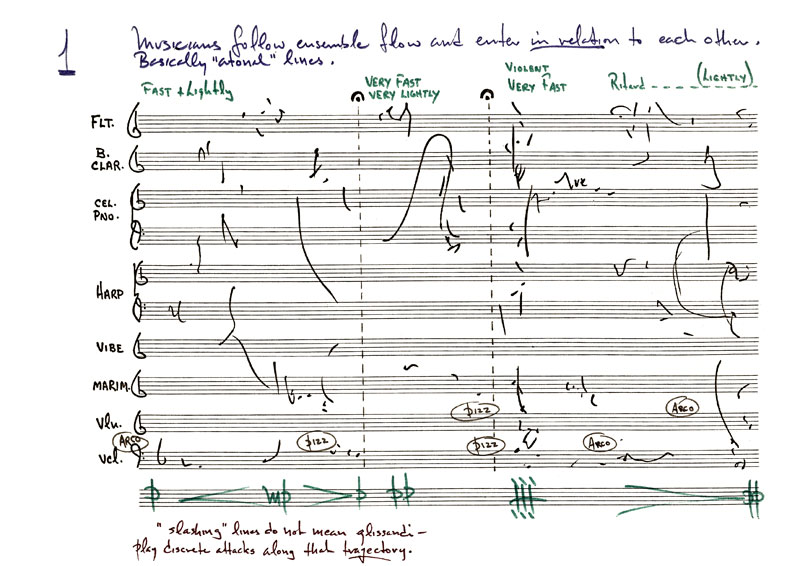 1
Musicians follow ensemble flow and enter in relation to each other.
Basically "atonal" lines.
Fast + Lightly
Very Fast
Very Lightly
Violent
Very Fast
Ritard _ _ _ _ _ (Lightly)
Flt.
B. Clar.
Cel.
Pno.
8ve
Harp
Vibe
Marim.
Pizz
Arco
Vln.
Arco
Pizz
Pizz
Arco
Vcl.
p mp p pp fff pp
" slashing" lines do not mean glissandi –
play discrete attacks along that trajectory.